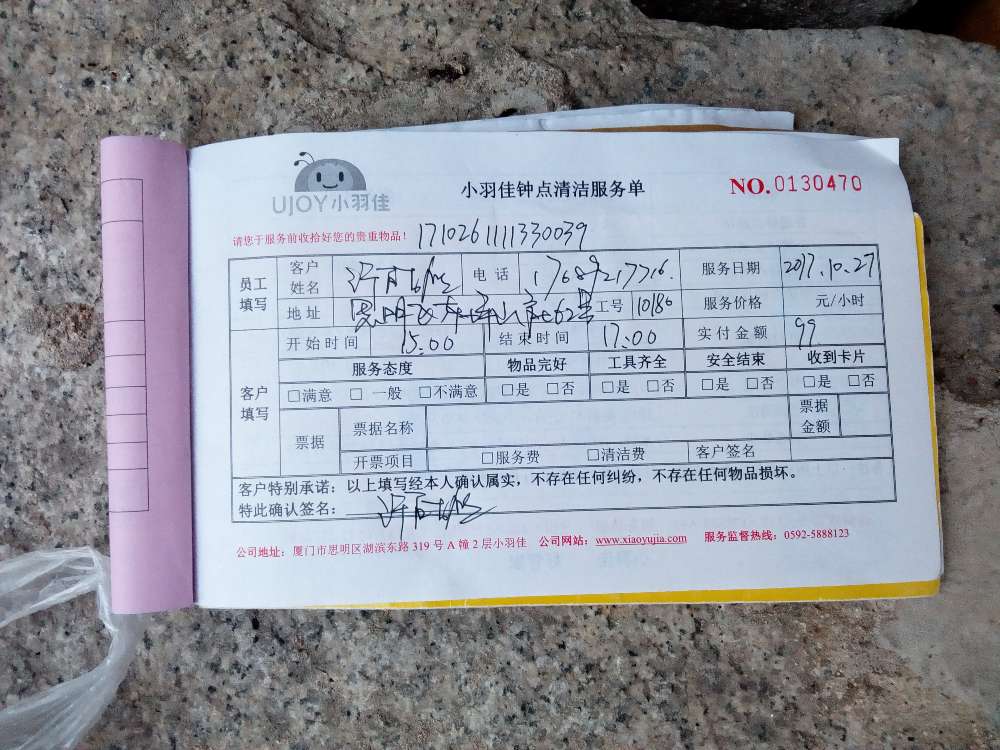 UJOY小羽佳
小羽佳钟点清洁服务单
NO.0130470
请您于服务前收拾好您的贵重物品！ 1710261111330039
员工填写 客户姓名 电话 服务日期 2017.10.27
地址 工号 10186 服务价格 元/小时
开始时间 15:00 结束时间 17:00 实付金额 99
客户填写 服务态度 物品完好 工具齐全 安全结束 收到卡片
□满意 □一般 □不满意 □是 □否 □是 □否 □是 □否 □是 □否
票据 票据名称 票据金额
开票项目 □服务费 □清洁费 客户签名
客户特别承诺：以上填写经本人确认属实，不存在任何纠纷，不存在任何物品损坏。
特此确认签名：
公司地址：厦门市思明区湖滨东路 319 号 A 幢 2 层小羽佳 公司网站：www.xiaoyujia.com 服务监督热线：0592-5888123